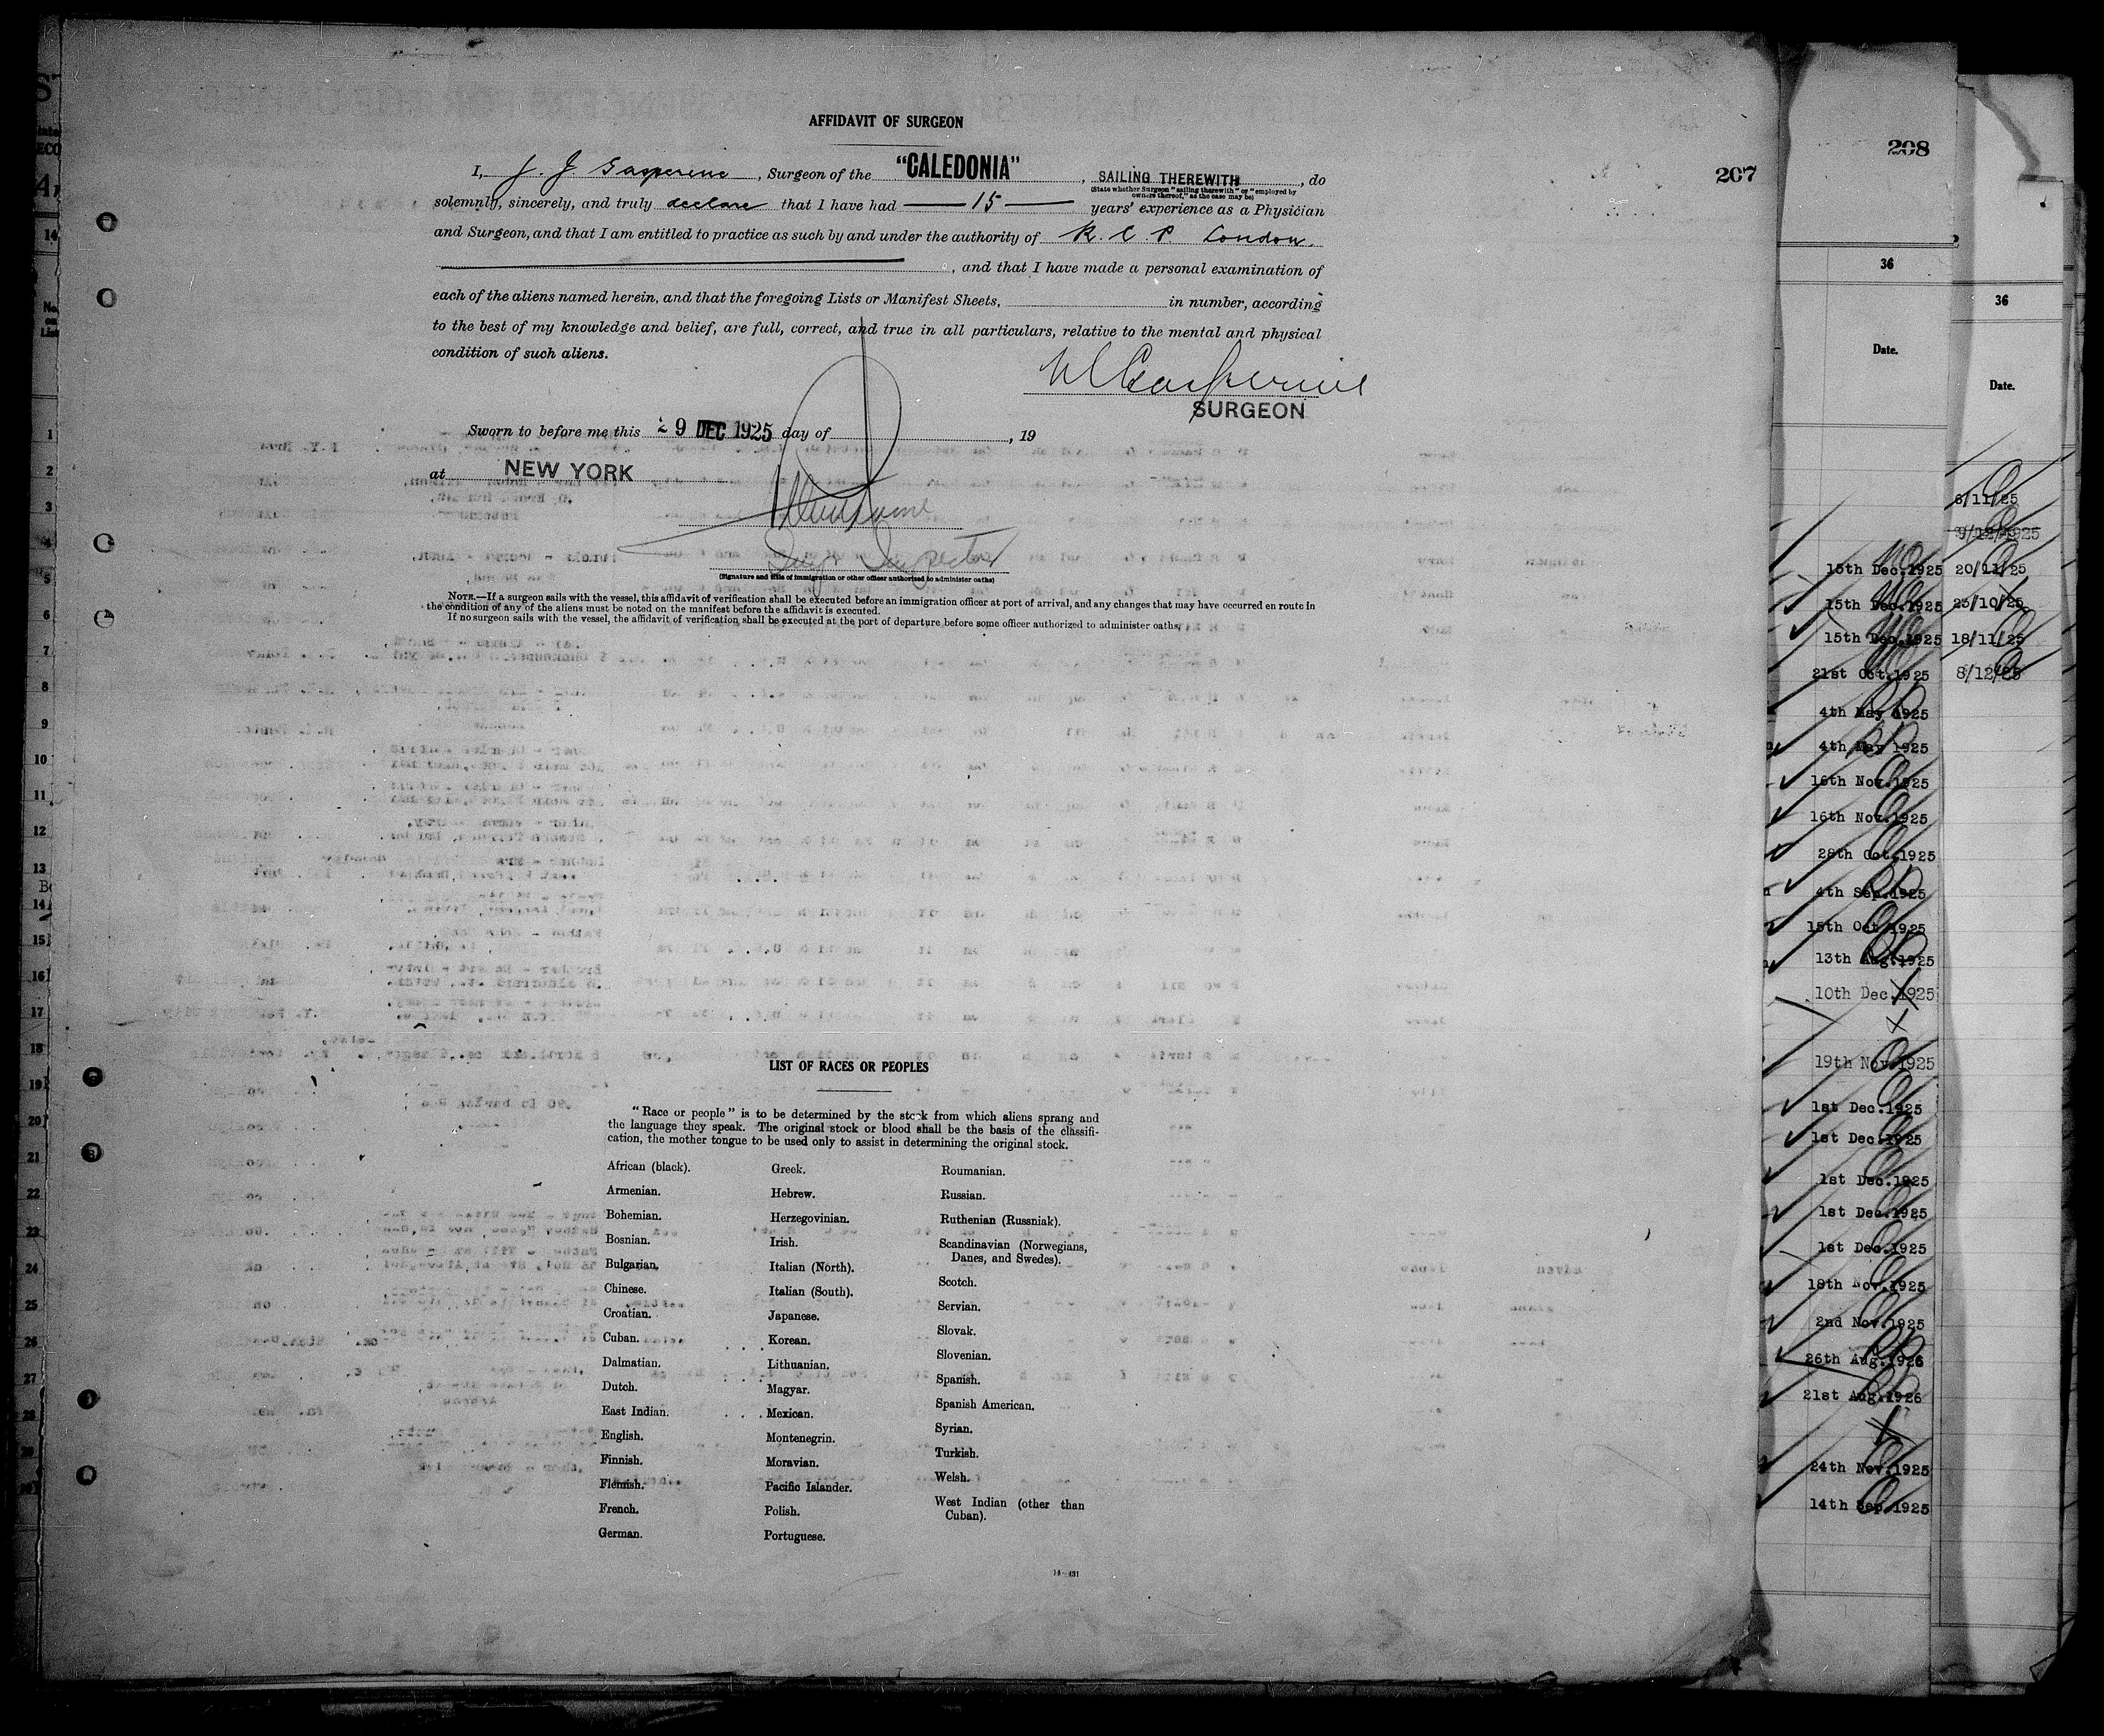 AFFIDAVIT OF SURGEON
I, J. J. Gasperine, Surgeon of the "CALEDONIA", SAILING THEREWITH, do
(State whether Surgeon "sailing therewith" or "employed by
owners thereof," as the case may be)
solemnly, sincerely, and truly declare that I have had 15 years' experience as a Physician
and Surgeon, and that I am entitled to practice as such by and under the authority of R. C. P. London.
, and that I have made a personal examination of
each of the aliens named herein, and that the foregoing Lists or Manifest Sheets, in number, according
to the best of my knowledge and belief, are full, correct, and true in all particulars, relative to the mental and physical
condition of such aliens.
SURGEON
Sworn to before me this 29 DEC 1925 day of , 19
at NEW YORK
(Signature and title of immigration or other officer authorized to administer oaths)
NOTE.—If a surgeon sails with the vessel, this affidavit of verification shall be executed before an immigration officer at port of arrival, and any changes that may have occurred en route in
the condition of any of the aliens must be noted on the manifest before the affidavit is executed.
If no surgeon sails with the vessel, the affidavit of verification shall be executed at the port of departure before some officer authorized to administer oaths.
LIST OF RACES OR PEOPLES
"Race or people" is to be determined by the stock from which aliens sprang and
the language they speak. The original stock or blood shall be the basis of the classifi-
cation, the mother tongue to be used only to assist in determining the original stock.
African (black).
Armenian.
Bohemian.
Bosnian.
Bulgarian.
Chinese.
Croatian.
Cuban.
Dalmatian.
Dutch.
East Indian.
English.
Finnish.
Flemish.
French.
German.
Greek.
Hebrew.
Herzegovinian.
Irish.
Italian (North).
Italian (South).
Japanese.
Korean.
Lithuanian.
Magyar.
Mexican.
Montenegrin.
Moravian.
Pacific Islander.
Polish.
Portuguese.
Roumanian.
Russian.
Ruthenian (Russniak).
Scandinavian (Norwegians,
Danes, and Swedes).
Scotch.
Servian.
Slovak.
Slovenian.
Spanish.
Spanish American.
Syrian.
Turkish.
Welsh.
West Indian (other than
Cuban).
14—431
207
208
36
Date.
15th Dec.1925
15th Dec.1925
15th Dec.1925
21st Oct.1925
4th May 1925
4th May 1925
16th Nov.1925
16th Nov.1925
28th Oct.1925
4th Sep.1925
15th Oct.1925
13th Aug.1925
10th Dec.1925
19th Nov.1925
1st Dec.1925
1st Dec.1925
1st Dec.1925
1st Dec.1925
1st Dec.1925
18th Nov.1925
2nd Nov.1925
26th Aug.1926
21st Aug.1926
24th Nov.1925
14th Sep.1925
36
Date.
6/11/25
9/12/1925
20/11/25
23/10/25
18/11/25
8/12/25
14
No.
on
List
1
2
3
4
5
6
7
8
9
10
11
12
13
14
15
16
17
18
19
20
21
22
23
24
25
26
27
28
29
30